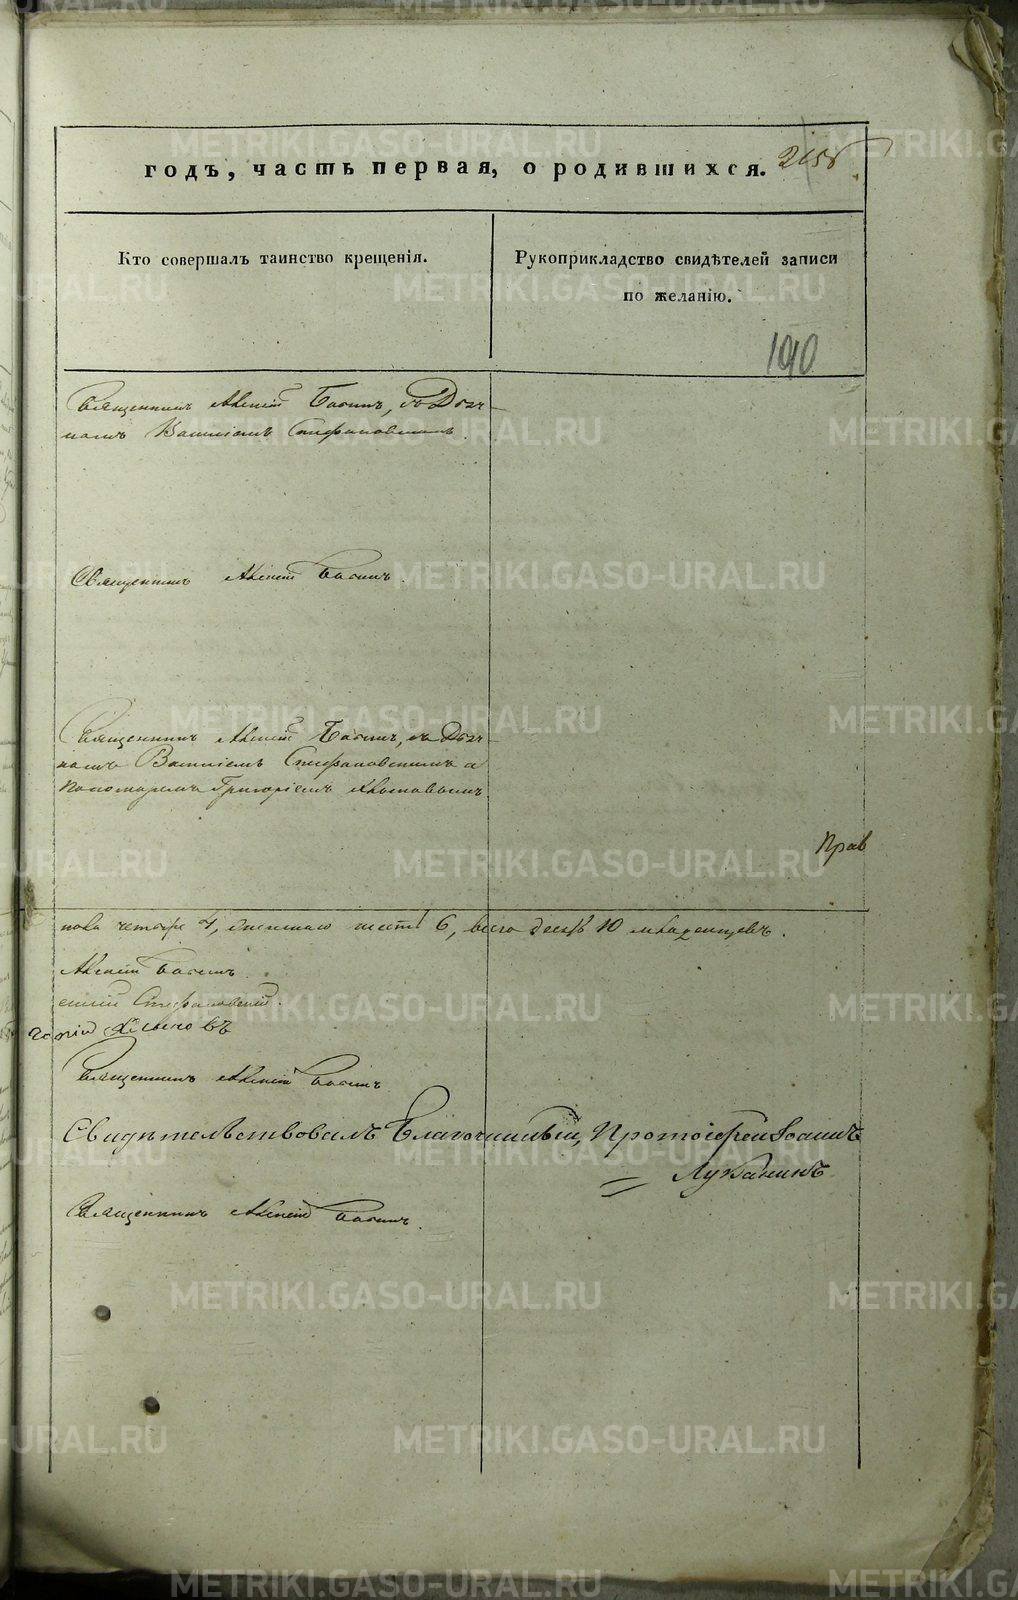 годъ, часть первая, о родившихся.
Кто совершалъ таинство крещенія.
Рукоприкладство свидѣтелей записи
по желанію.
190
Священникъ Алексій Басинъ, съ Діач-
комъ Василіемъ Стефановскимъ.
Священникъ Алексій Басинъ.
Священникъ Алексій Басинъ, съ Діач-
комъ Василіемъ Стефановскимъ и
Пономаремъ Григоріемъ
Прав
пола четыре 4, женскаго шесть 6, всего десять 10 младенцевъ.
Алексій Басинъ
силій Стефановскій.
горій
Священникъ Алексій Басинъ
Свидѣтельствовалъ Благочинный, Протоіерей Іоаннъ
Луканинъ
Священникъ Алексій Басинъ.
METRIKI.GASO-URAL.RU